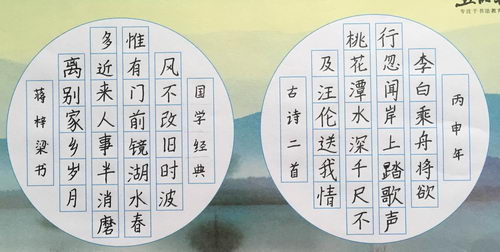 专注于书法教育
丙申年
李白乘舟将欲
行忽闻岸上踏歌声
桃花潭水深千尺不
及汪伦送我情
古诗二首
国学经典
离别家乡岁月
多近来人事半消磨
惟有门前镜湖水春
风不改旧时波
蒋梓梁书